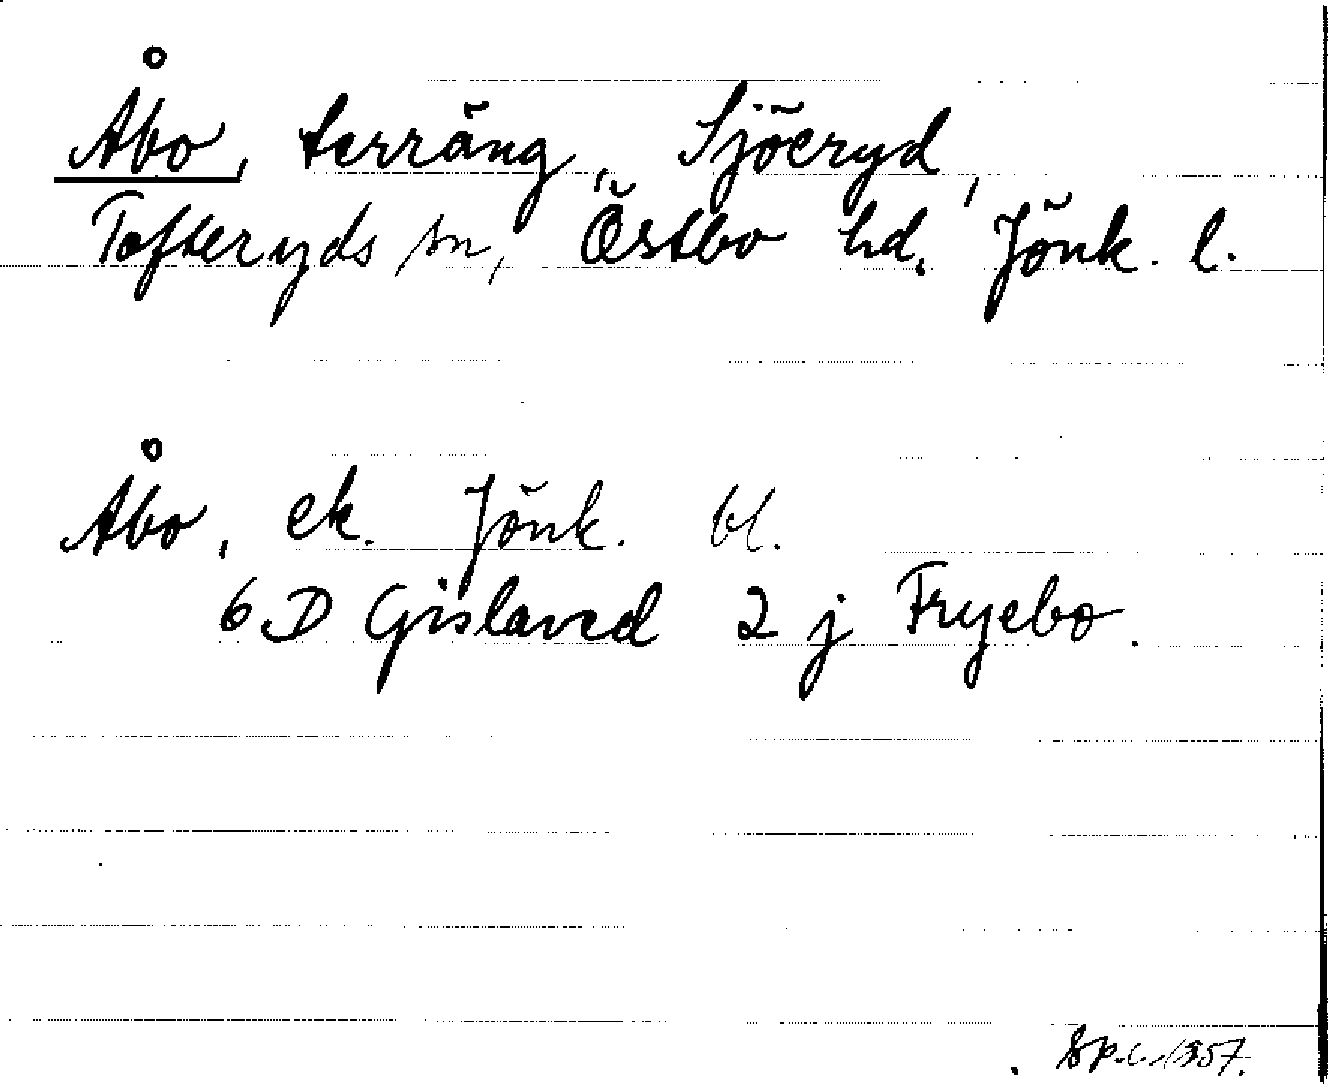 Åbo, terräng, Sjöeryd,
Tofteryds sn, Östbo hd. Jönk. l.
Åbo, ek. Jönk. bl.
6 D Gislaved 2 j Fryebo.
1957.